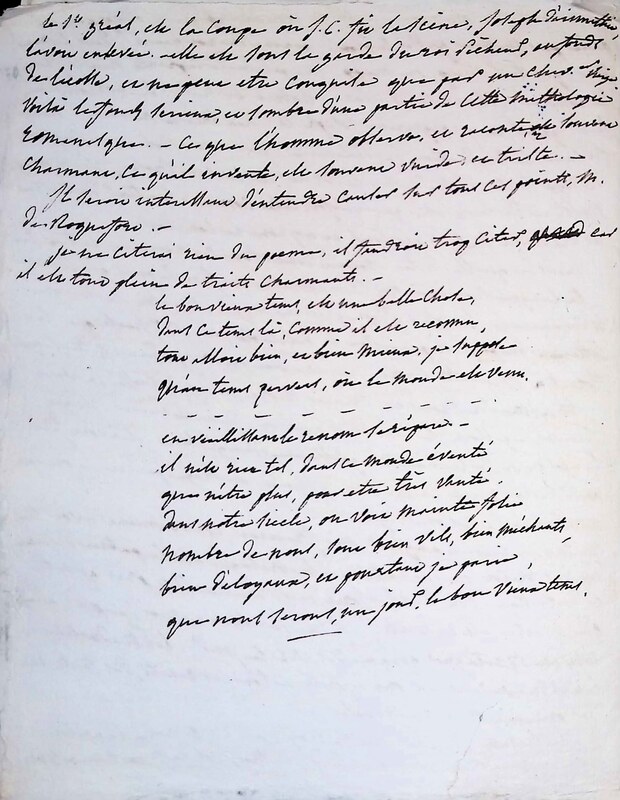 le St. gréal, est la Coupe où J.C. fit la Scène, Joseph d'arimathie,
l'avoit enlevée. elle est sous la garde du roi Pécheur, au fonds
de l'écosse, et ne peut etre Conquise que par un Chev. vierge
Voilà le fonds serieux, et sombre d'une partie de Cette Mithologie
romanesque. — Ce que l'homme observe, et raconte est souvent
Charmant, Ce qu'il invente, est souvent vuide, et triste. —
Il seroit interessant d'entendre Causer sur tous Ces points, M.
de Roquefort. —
je ne Citerai rien du poeme, il faudroit trop Citer, car
il est tout plein de traits Charmants. —
le bon vieux tems, est une belle Chose,
dans Ce tems là, Comme il est reconnu,
tout alloit bien, et bien mieux, je suppose
qu'au tems pervers, où le monde est venu.
— — — — — — — — — —
en vieillissant le renom se répare. —
il n'est rien tel, dans Ce monde éventé
que n'être plus, pour etre très vanté.
dans notre siecle, on voit mainte folie
nombre de nous, sont bien vils, bien méchants,
bien déloyaux, et pourtant je parie,
que nous serons, un jour, le bon vieux tems.